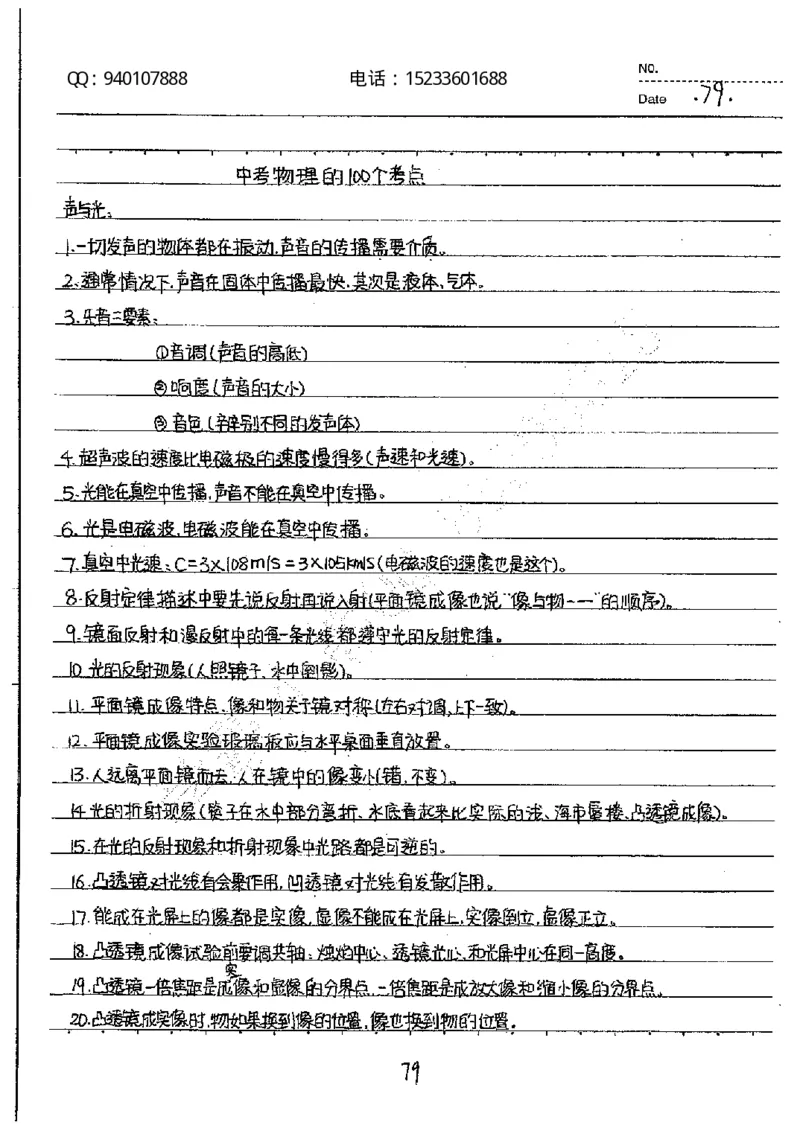 QQ：940107888 电话：15233601688
NO.
Date .79.
中考物理的100个考点
声与光：
1.一切发声的物体都在振动.声音的传播需要介质。
2.通常情况下,声音在固体中传播最快,其次是液体,气体。
3.乐音三要素：
①音调(声音的高低)
②响度(声音的大小)
③音色(辨别不同的发声体)
4.超声波的速度比电磁极的速度慢得多(声速和光速)。
5.光能在真空中传播,声音不能在真空中传播。
6.光是电磁波,电磁波能在真空中传播。
7.真空中光速：C=3×108m/s=3×105km/s(电磁波的速度也是这个)。
8.反射定律描述中要先说反射再说入射(平面镜成像也说"像与物---"的顺序)。
9.镜面反射和漫反射中的每一条光线都遵守光的反射定律。
10.光的反射现象(人照镜子、水中倒影)。
11.平面镜成像特点.像和物关于镜对称(左右对调,上下一致)。
12.平面镜成像实验玻璃板应与水平桌面垂直放置。
13.人远离平面镜而去,人在镜中的像变小(错,不变)。
14.光的折射现象(筷子在水中部分弯折、水底看起来比实际的浅、海市蜃楼、凸透镜成像)。
15.在光的反射现象和折射现象中光路都是可逆的。
16.凸透镜对光线有会聚作用,凹透镜对光线有发散作用。
17.能成在光屏上的像都是实像,虚像不能成在光屏上,实像倒立,虚像正立。
18.凸透镜成像试验前要调共轴：烛焰中心、透镜光心、和光屏中心在同一高度。
19.凸透镜一倍焦距是成实像和虚像的分界点,二倍焦距是成放大像和缩小像的分界点。
20.凸透镜成实像时,物如果换到像的位置,像也换到物的位置。
79